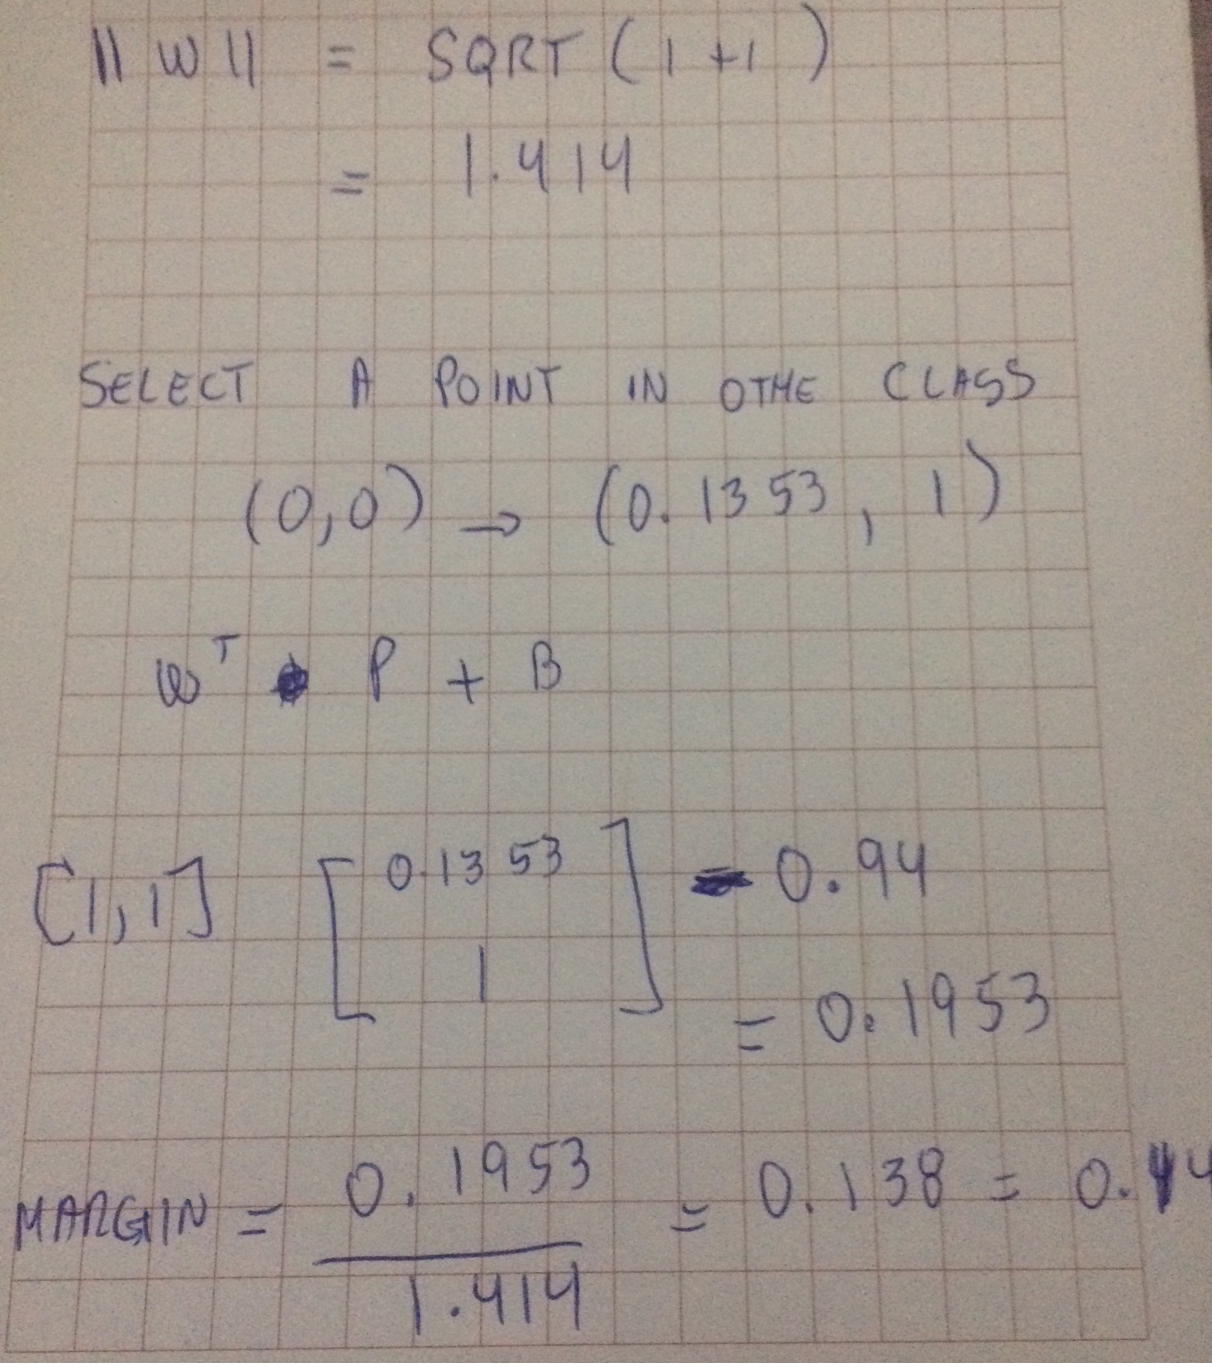 ||W|| = SQRT(1+1)
= 1.414
SELECT A POINT IN OTHE CLASS
(0,0) → (0.1353, 1)
W^T P + B
[1,1] [0.1353
1] - 0.94
= 0.1953
MARGIN = 0.1953 / 1.414 = 0.138 = 0.14